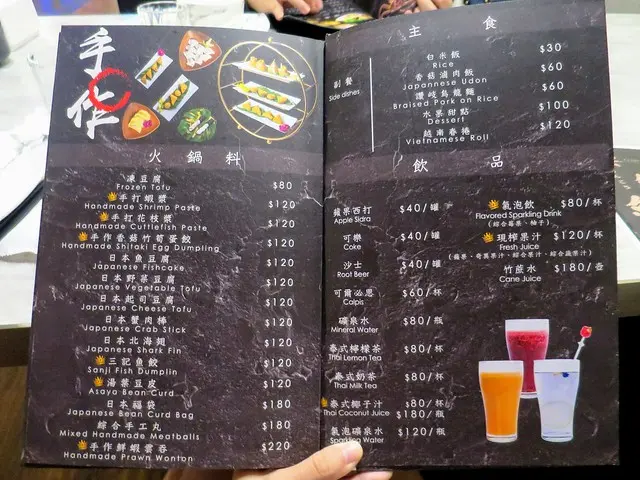 手作
火鍋料
凍豆腐
Frozen Tofu
$80
手打蝦漿
Handmade Shrimp Paste
$120
手打花枝漿
Handmade Cuttlefish Paste
$120
手作香菇竹筍蛋餃
Handmade Shitaki Egg Dumpling
$120
日本魚豆腐
Japanese Fishcake
$120
日本野菜豆腐
Japanese Vegetable Tofu
$120
日本起司豆腐
Japanese Cheese Tofu
$120
日本蟹肉棒
Japanese Crab Stick
$120
日本北海翅
Japanese Shark Fin
$120
三記魚餃
Sanji Fish Dumplin
$120
湯葉豆皮
Asaya Bean Curd
$120
日本福袋
Japanese Bean Curd Bag
$180
綜合手工丸
Mixed Handmade Meatballs
$180
手作鮮蝦雲吞
Handmade Prawn Wonton
$220
主食
副餐
Side dishes
白米飯
Rice
$30
香菇滷肉飯
Japanese Udon
$60
讚岐烏龍麵
Braised Pork on Rice
$60
水果甜點
Dessert
$100
越南春捲
Vietnamese Roll
$120
飲品
蘋果西打
Apple Sidra
$40/罐
可樂
Coke
$40/罐
沙士
Root Beer
$40/罐
可爾必思
Calpis
$60/杯
礦泉水
Mineral Water
$80/瓶
泰式檸檬茶
Thai Lemon Tea
$80/杯
泰式奶茶
Thai Milk Tea
$80/杯
泰式椰子汁
Thai Coconut Juice
$80/杯
$180/瓶
氣泡礦泉水
Sparkling Water
$120/瓶
氣泡飲
Flavored Sparkling Drink
(綜合莓果、柚子)
$80/杯
現榨果汁
Fresh Juice
$120/杯
(蘋果、奇異果汁、綜合果汁、綜合蔬果汁)
竹蔗水
Cane Juice
$180/壺